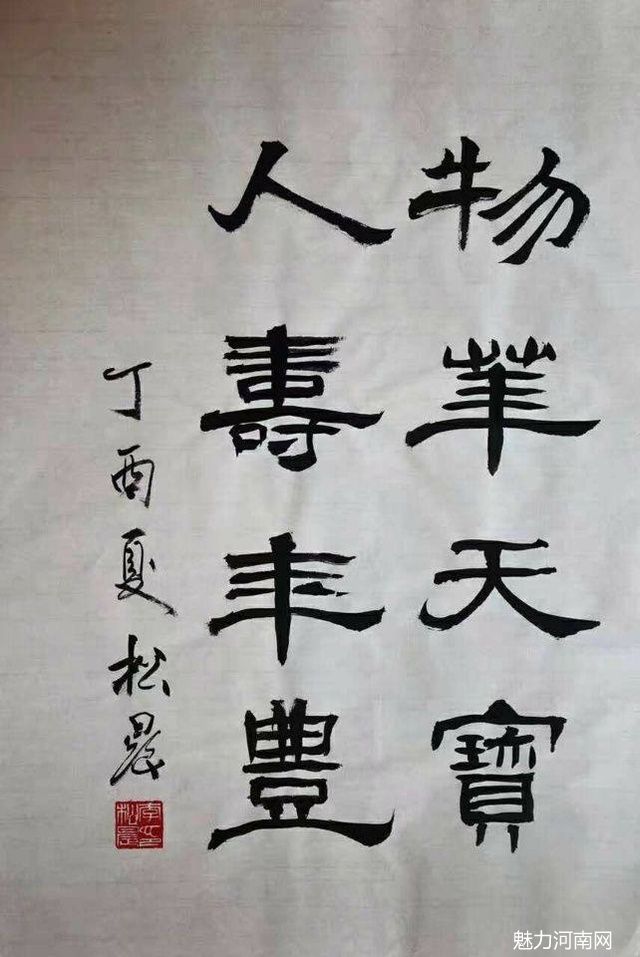 物華天寶
人壽年豐
丁酉夏松晨
魅力河南网